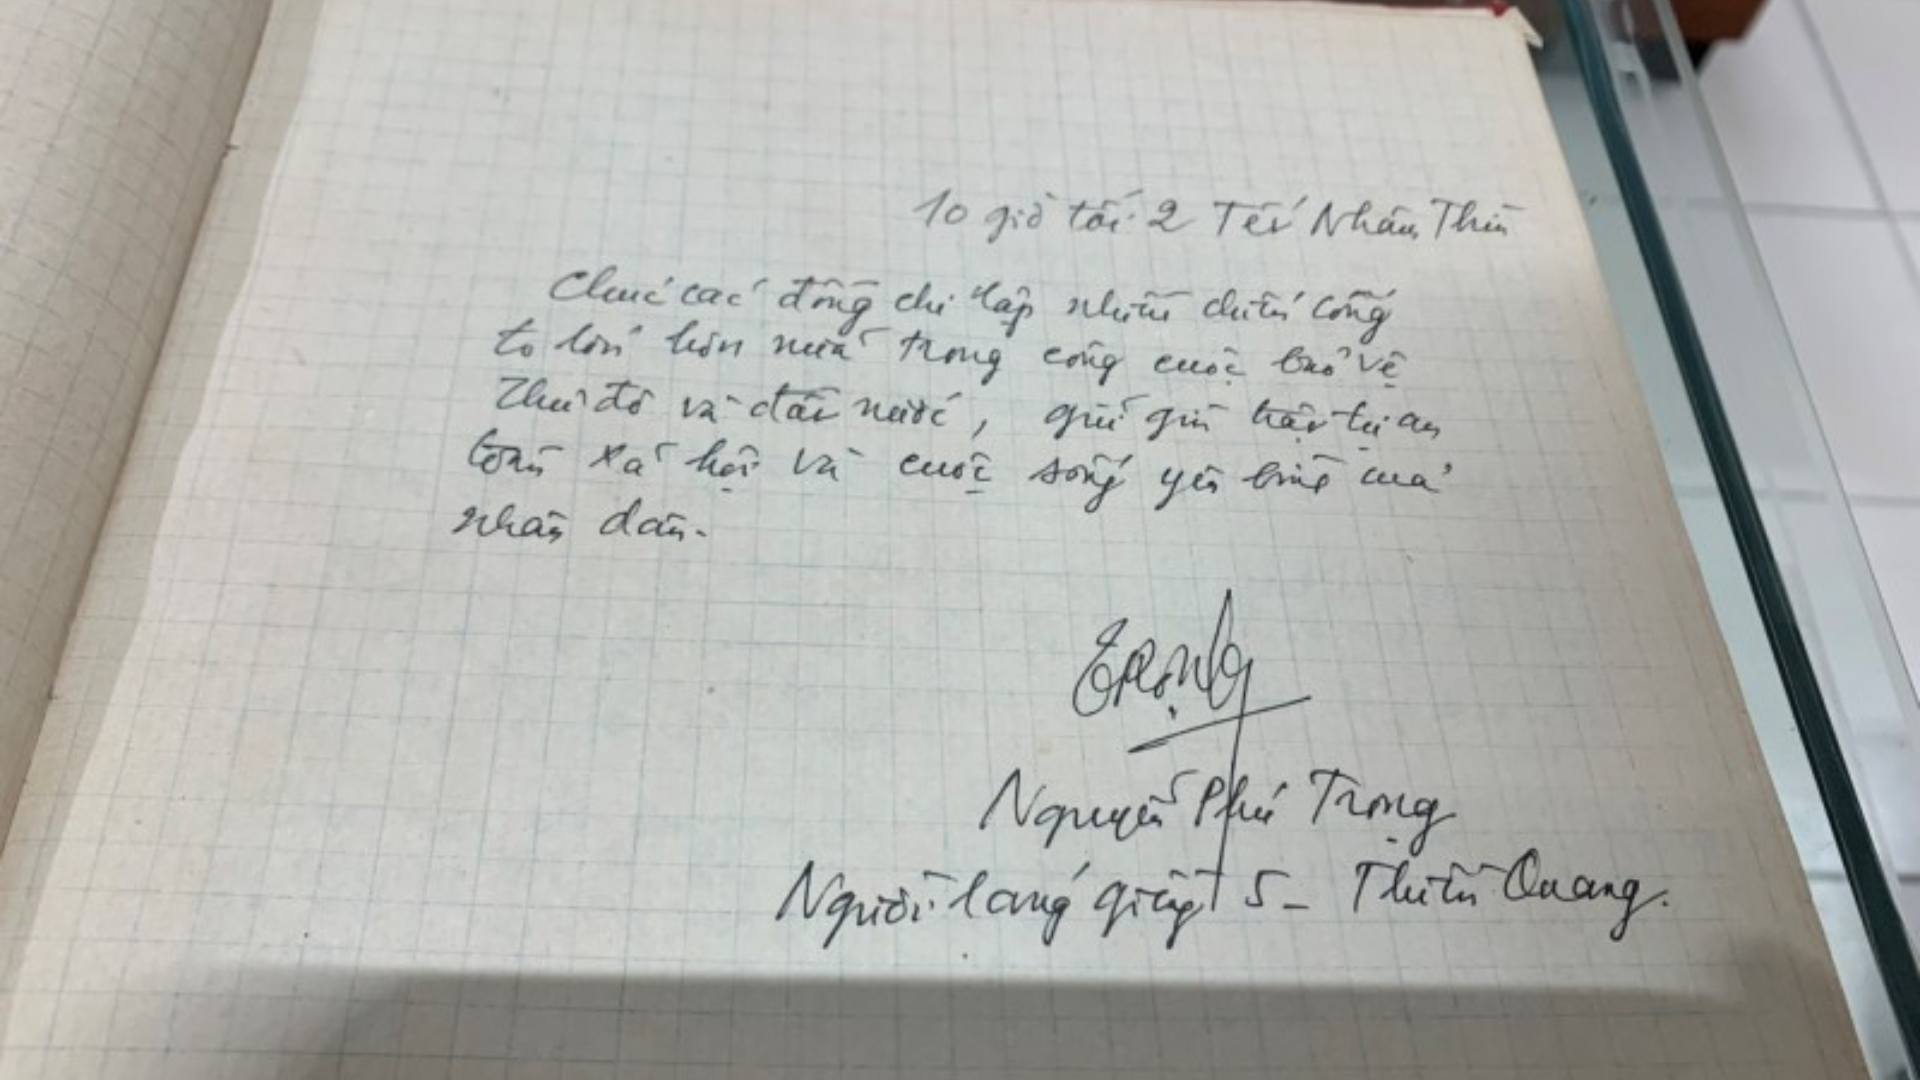 10 giờ tối 2 Tết Nhâm Thìn
Chúc các đồng chí lập nhiều chiến công
to lớn hơn nữa trong công cuộc bảo vệ
Thủ đô và đất nước, giữ gìn trật tự an
toàn xã hội và cuộc sống yên bình của
nhân dân.
Trọng
Nguyễn Phú Trọng
Người láng giềng 5 - Thiền Quang.